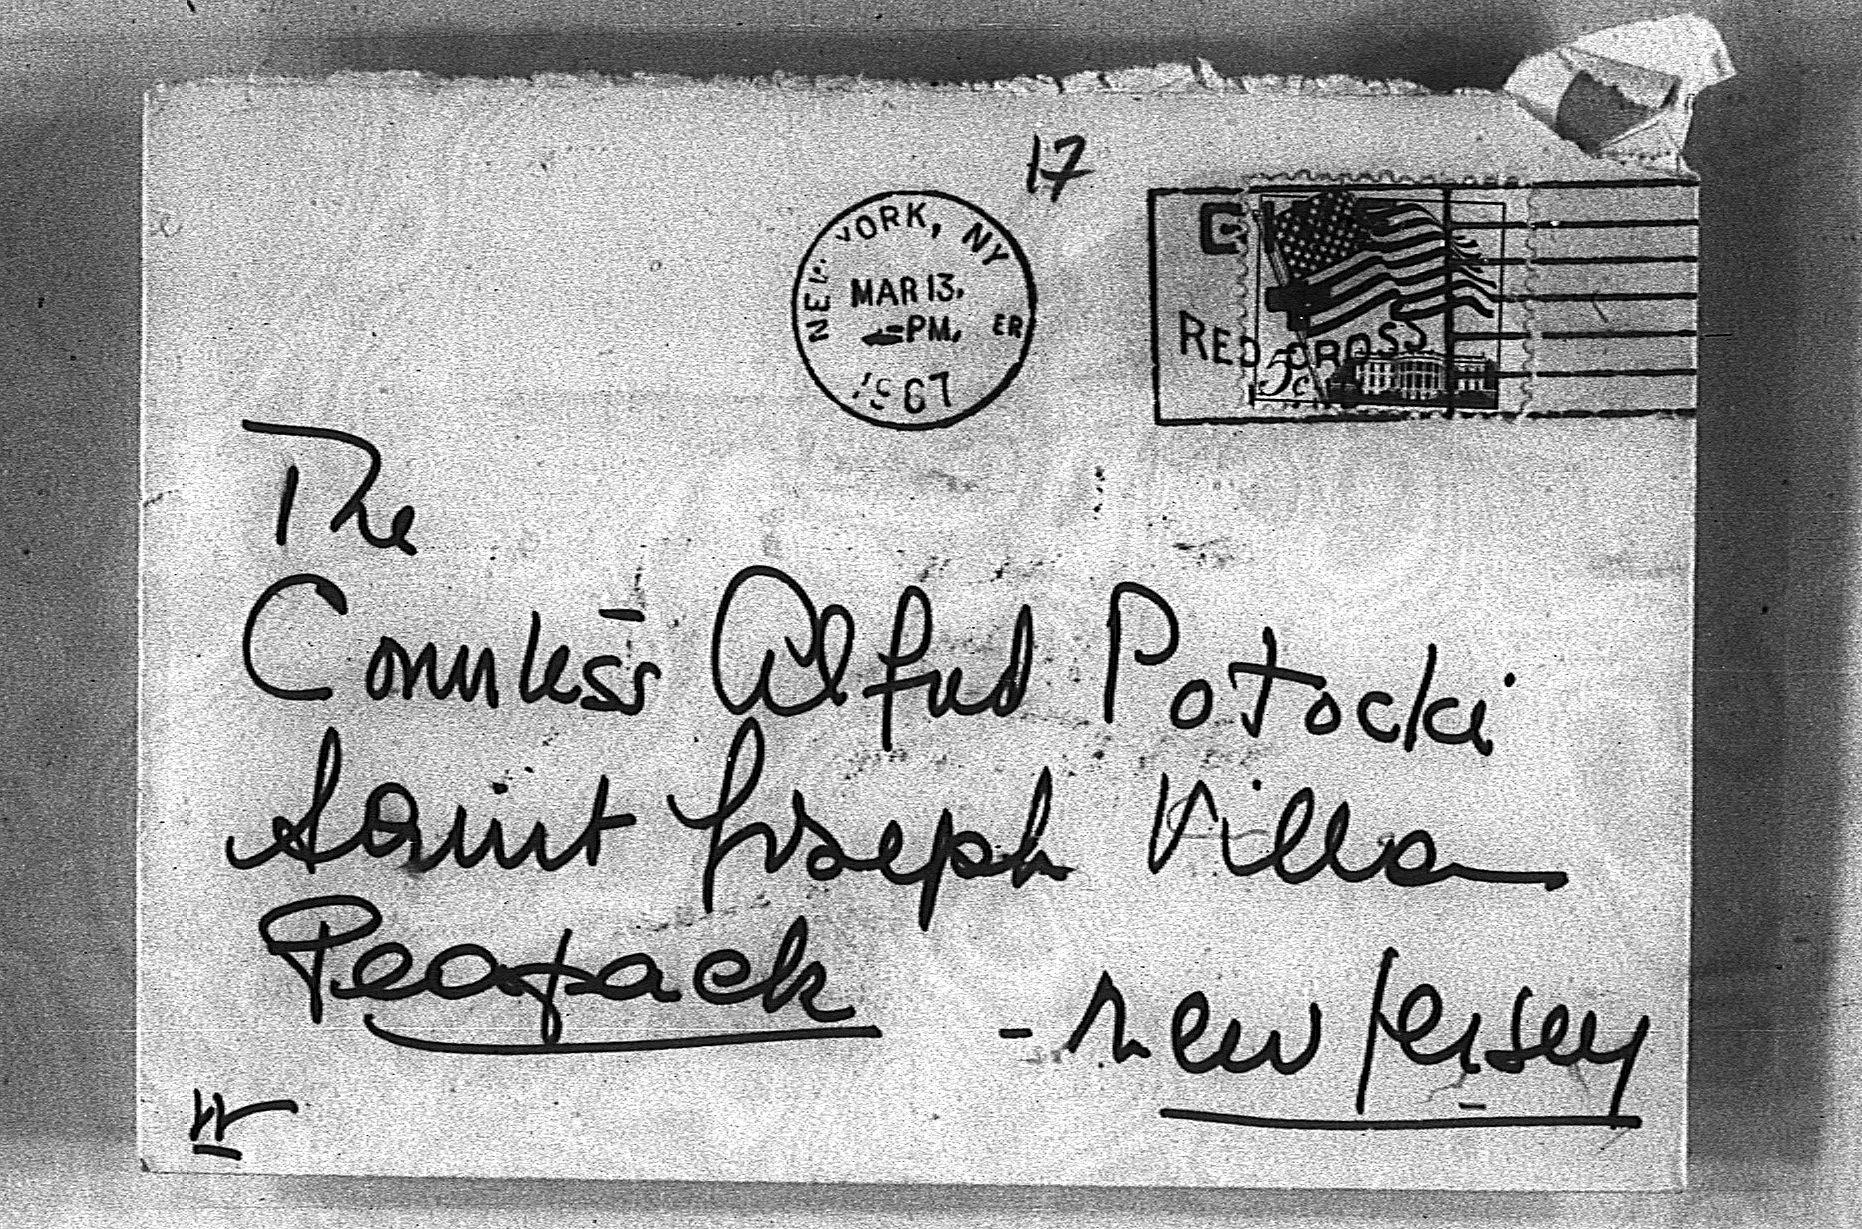 17
NEW YORK, NY
MAR 13,
PM,
1967
RED CROSS
5c
The
Countess Alfred Potocki
Saint Joseph Villa
Peapack
- New Jersey